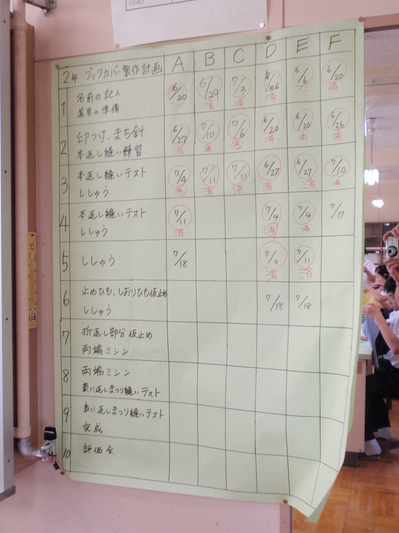 2年 ブックカバー製作計画 A B C D E F
1 名前の記入 5/20 6/29 7/3 6/6 6/20
道具の準備 済 済 済 済 済
2 印つけ、まち針 6/27 7/10 7/6 6/20 6/20 6/26
本返し縫い練習 済 済 済 済 済 済
3 本返し縫いテスト 7/4 7/11 7/13 6/27 6/27 7/10
ししゅう 済 済 済 済 済 済
4 本返し縫いテスト 7/11 7/4 7/4 7/17
ししゅう 済 済 済
5 ししゅう 7/18 7/11
済 済
6 止めひも、しおりひも仮止め 7/18 7/18
ししゅう
7 折返し部分仮止め
両端ミシン
8 両端ミシン
表に返しまつり縫いテスト
9 表に返しまつり縫いテスト
完成
10 評価会